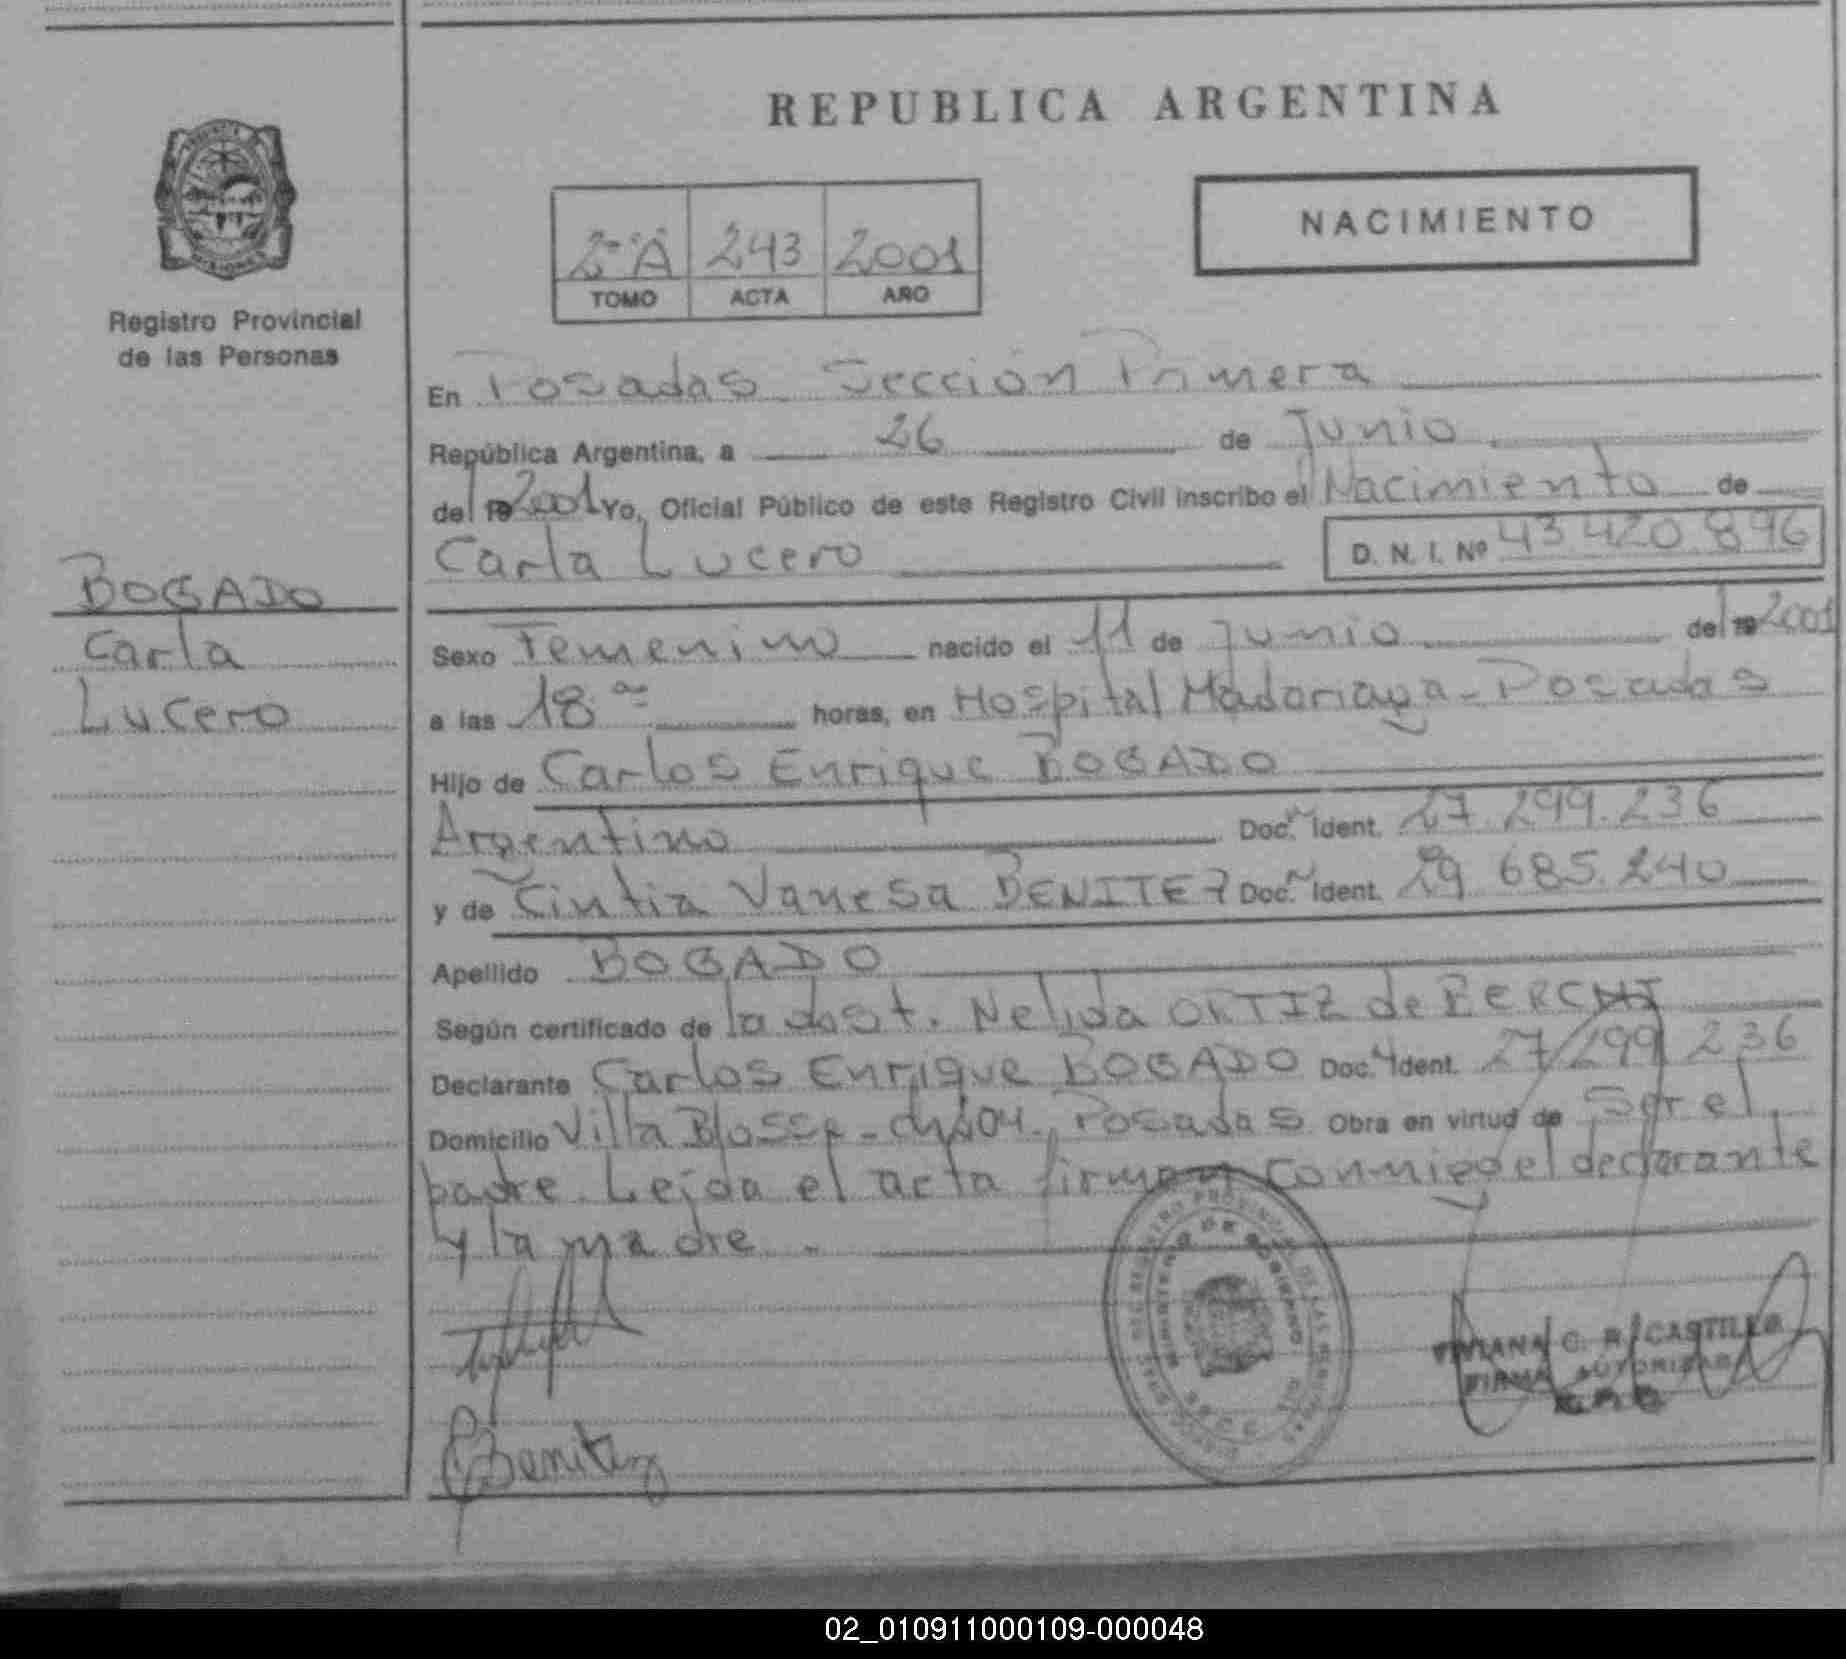 REPUBLICA ARGENTINA
NACIMIENTO
2º A 243 2001
TOMO ACTA AÑO
Registro Provincial
de las Personas
En Posadas Sección Primera
República Argentina, a 26 de Junio
del 19 2001 Yo, Oficial Público de este Registro Civil inscribo el Nacimiento de
Carla Lucero D. N. I. Nº 43 420 896
BOGADO
Carla
Lucero
Sexo Femenino nacido el 11 de Junio del 19 2001
a las 18 horas, en Hospital Madariaga - Posadas
Hijo de Carlos Enrique BOGADO
Argentino Doc. Ident. 27.299.236
y de Cintia Vanesa BENITEZ Doc. Ident. 29 685.240
Apellido BOGADO
Según certificado de la obst. Nelida ORTIZ de
Declarante Carlos Enrique BOGADO Doc. Ident. 27 299 236
Domicilio Villa Posadas Obra en virtud de Ser el
padre. Leída el acta firman conmigo el declarante
y la madre.
MINISTERIO DE GOBIERNO
VIVIANA C. R. CASTILLO
FIRMA AUTORIZADA
Benitez
02_010911000109-000048